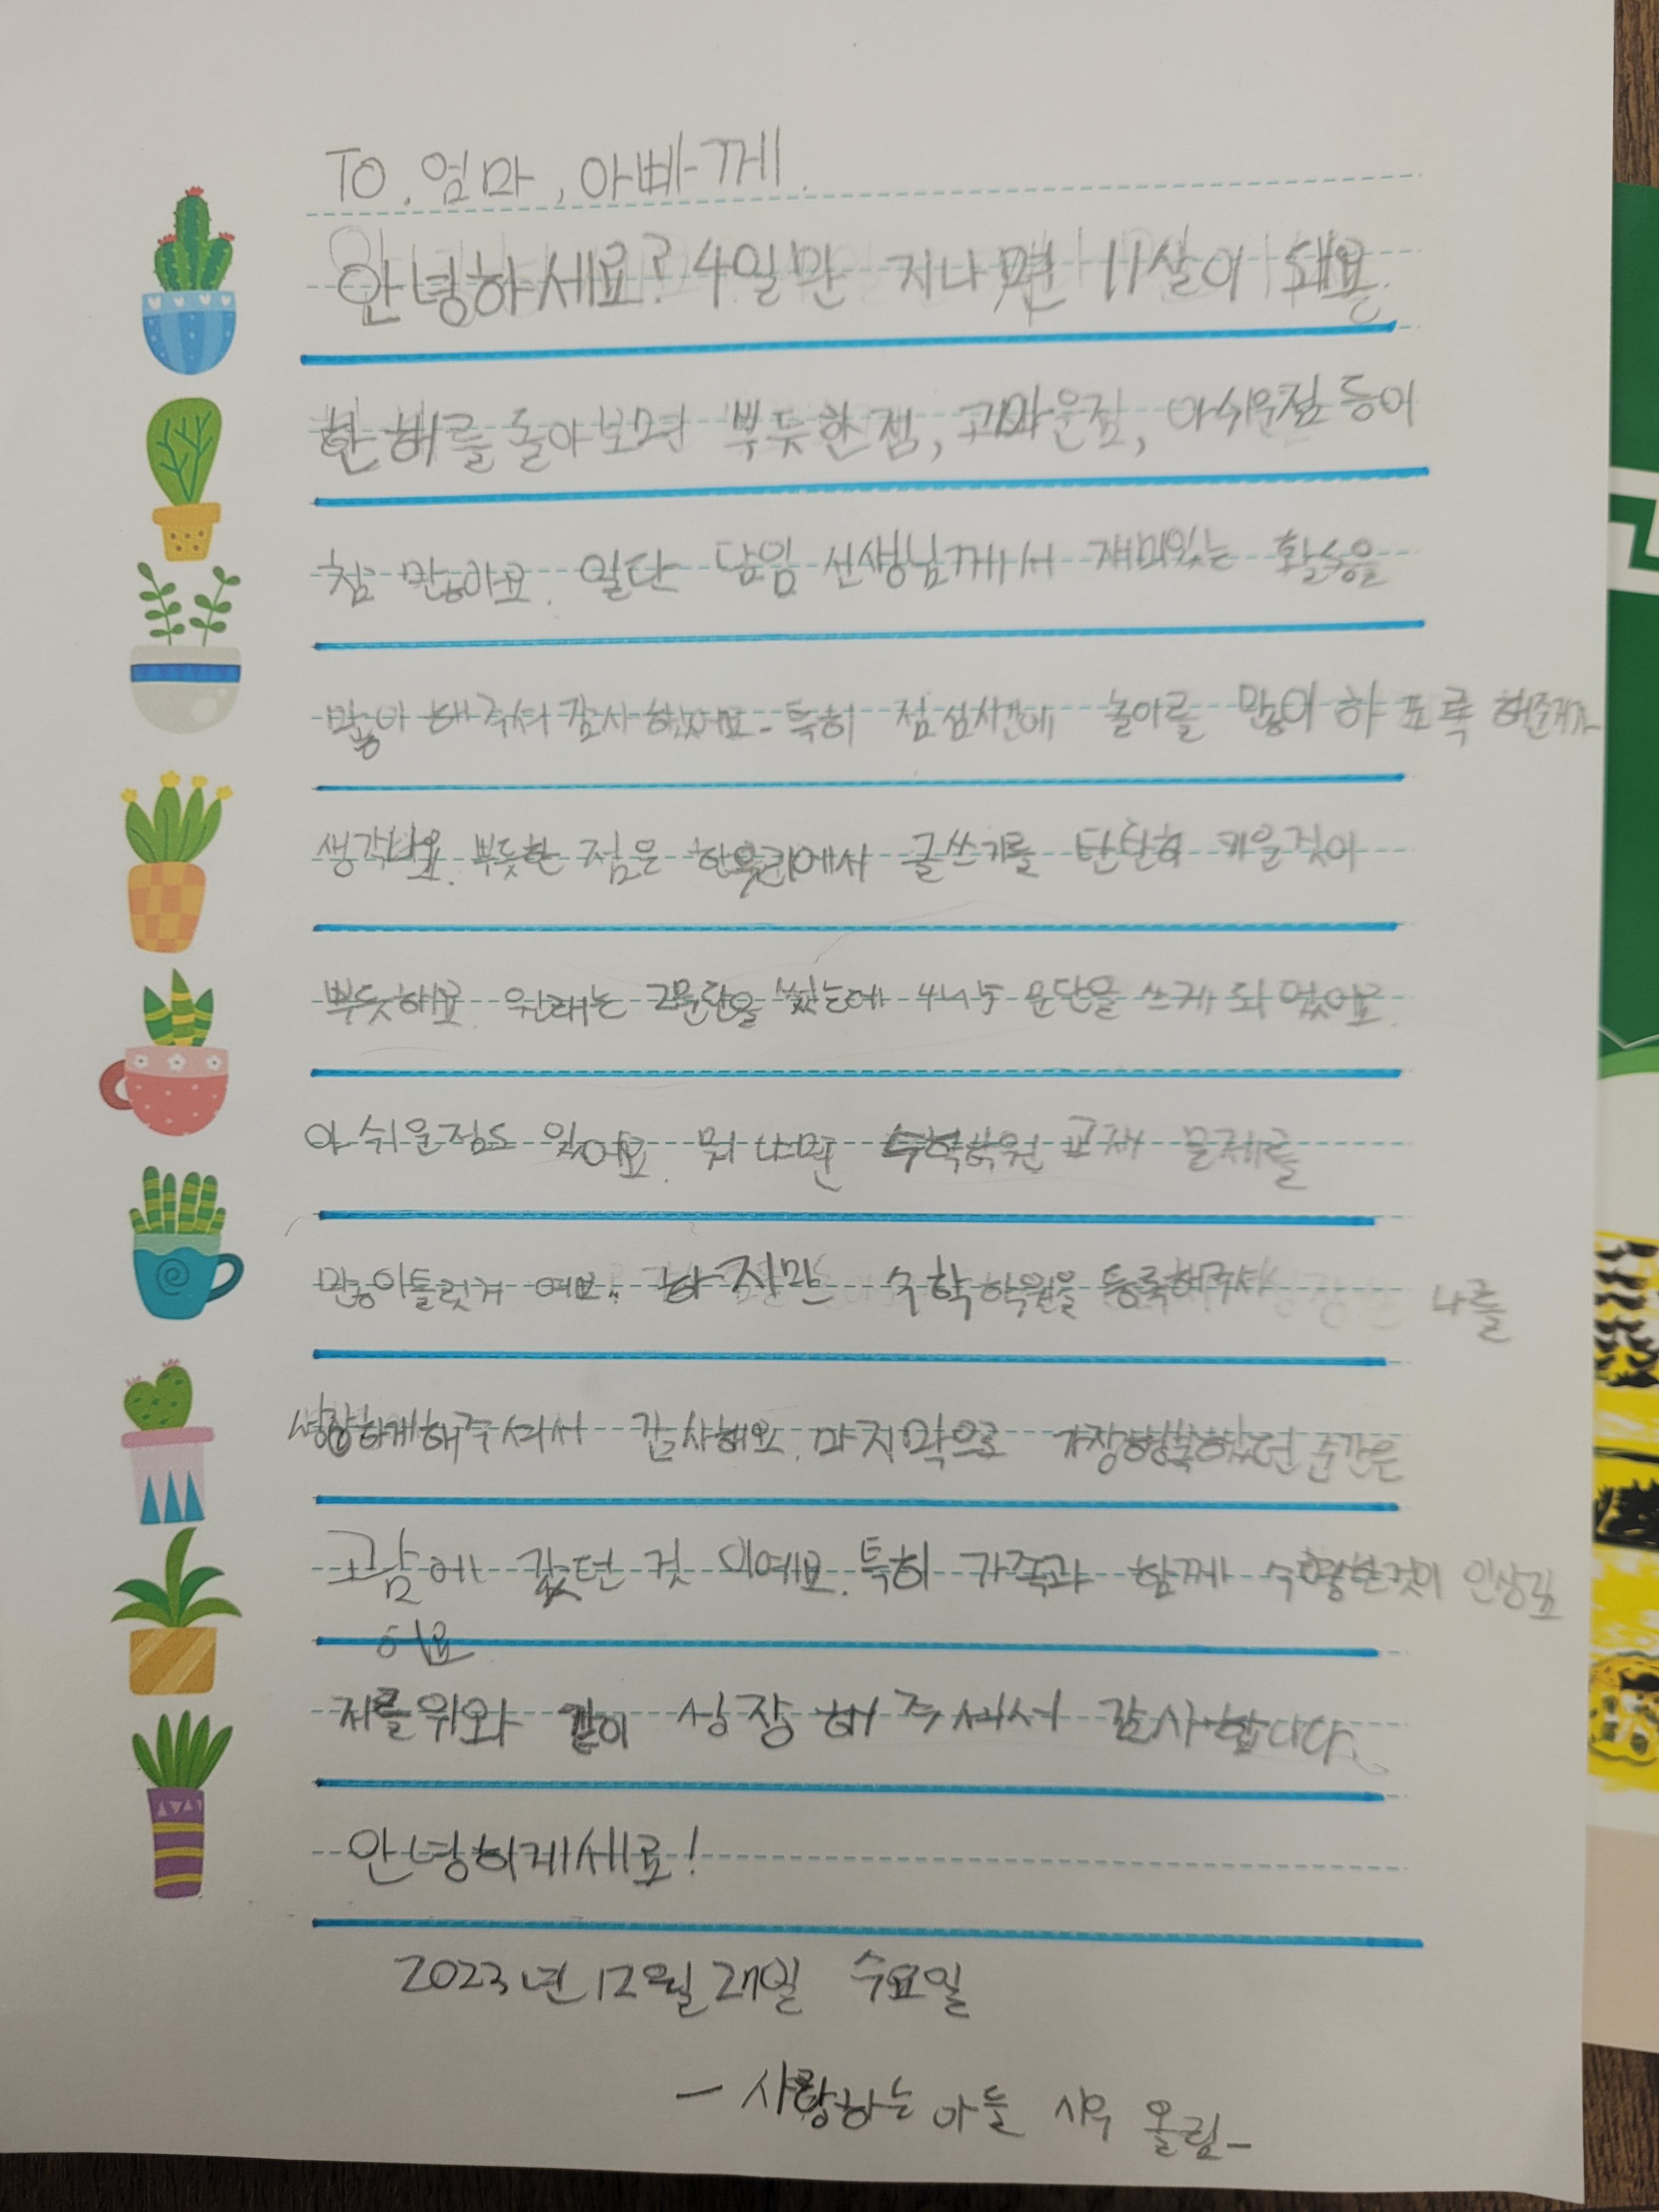 TO. 엄마, 아빠께.
안녕하세요? 4일만 지나면 11살이 돼요.
한 해를 돌아보면 뿌듯한점, 고마운점, 아쉬운점 등이
참 많아요. 일단 담임 선생님께서 재미있는 활동을
많이 해주셔서 감사했어요. 특히 점심시간에 놀이를 많이 하도록 해준게
생각나요. 뿌듯한 점은 한우리에서 글쓰기를 탄탄히 키운것이
뿌듯해요. 원래는 2문단을 썼는데 4~5 문단을 쓰게 되었어요.
아쉬운점도 있어요. 뭐냐면 수학학원 교재 문제를
많이틀린거 예요. 하지만 수학학원을 등록해주셔 나를
성장하게해주셔서 감사해요. 마지막으로 가장행복했던 순간은
괌에 갔던 것 이예요. 특히 가족과 함께 수영한것이 인상깊
어요
저를위와 같이 성장해 주셔서 감사합니다.
안녕히게세요!
2023년 12월 27일 수요일
- 사랑하는 아들 시우 올림-